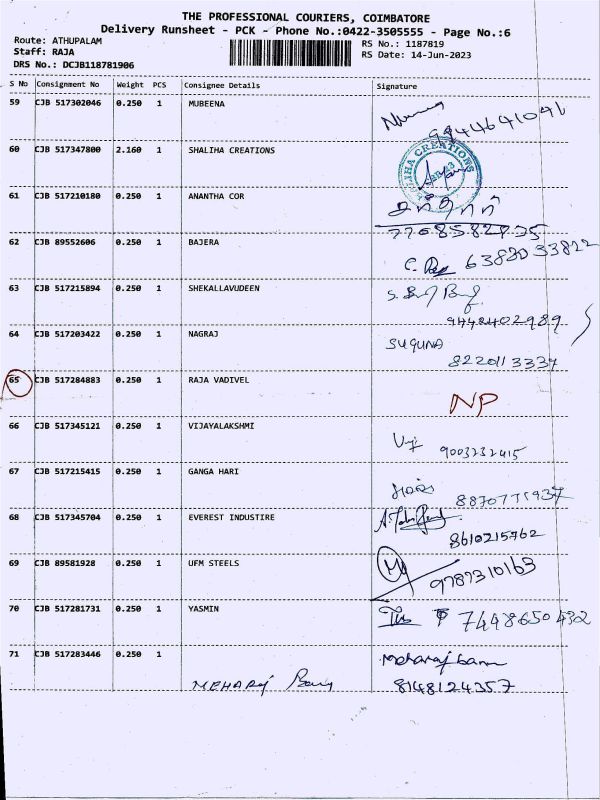 THE PROFESSIONAL COURIERS, COIMBATORE
Delivery Runsheet - PCK - Phone No.:0422-3505555 - Page No.:6
Route: ATHUPALAM RS No.: 1187819
Staff: RAJA RS Date: 14-Jun-2023
DRS No.: DCJB118781906
S No Consignment No Weight PCS Consignee Details Signature
59 CJB 517302046 0.250 1 MUBEENA
9944641041
60 CJB 517347800 2.160 1 SHALIHA CREATIONS
61 CJB 517210180 0.250 1 ANANTHA COR
7708582735
62 CJB 89552606 0.250 1 BAJERA
6383033822
63 CJB 517215894 0.250 1 SHEKALLAVUDEEN
9448402989
64 CJB 517203422 0.250 1 NAGRAJ SUGUNA
8220113337
65 CJB 517284883 0.250 1 RAJA VADIVEL
NP
66 CJB 517345121 0.250 1 VIJAYALAKSHMI
9003232415
67 CJB 517215415 0.250 1 GANGA HARI
8870775937
68 CJB 517345704 0.250 1 EVEREST INDUSTIRE
8610215762
69 CJB 89581928 0.250 1 UFM STEELS
9787310163
70 CJB 517281731 0.250 1 YASMIN
7448650432
71 CJB 517283446 0.250 1 Meharajbanu
MEHARJ Banu 8148124357